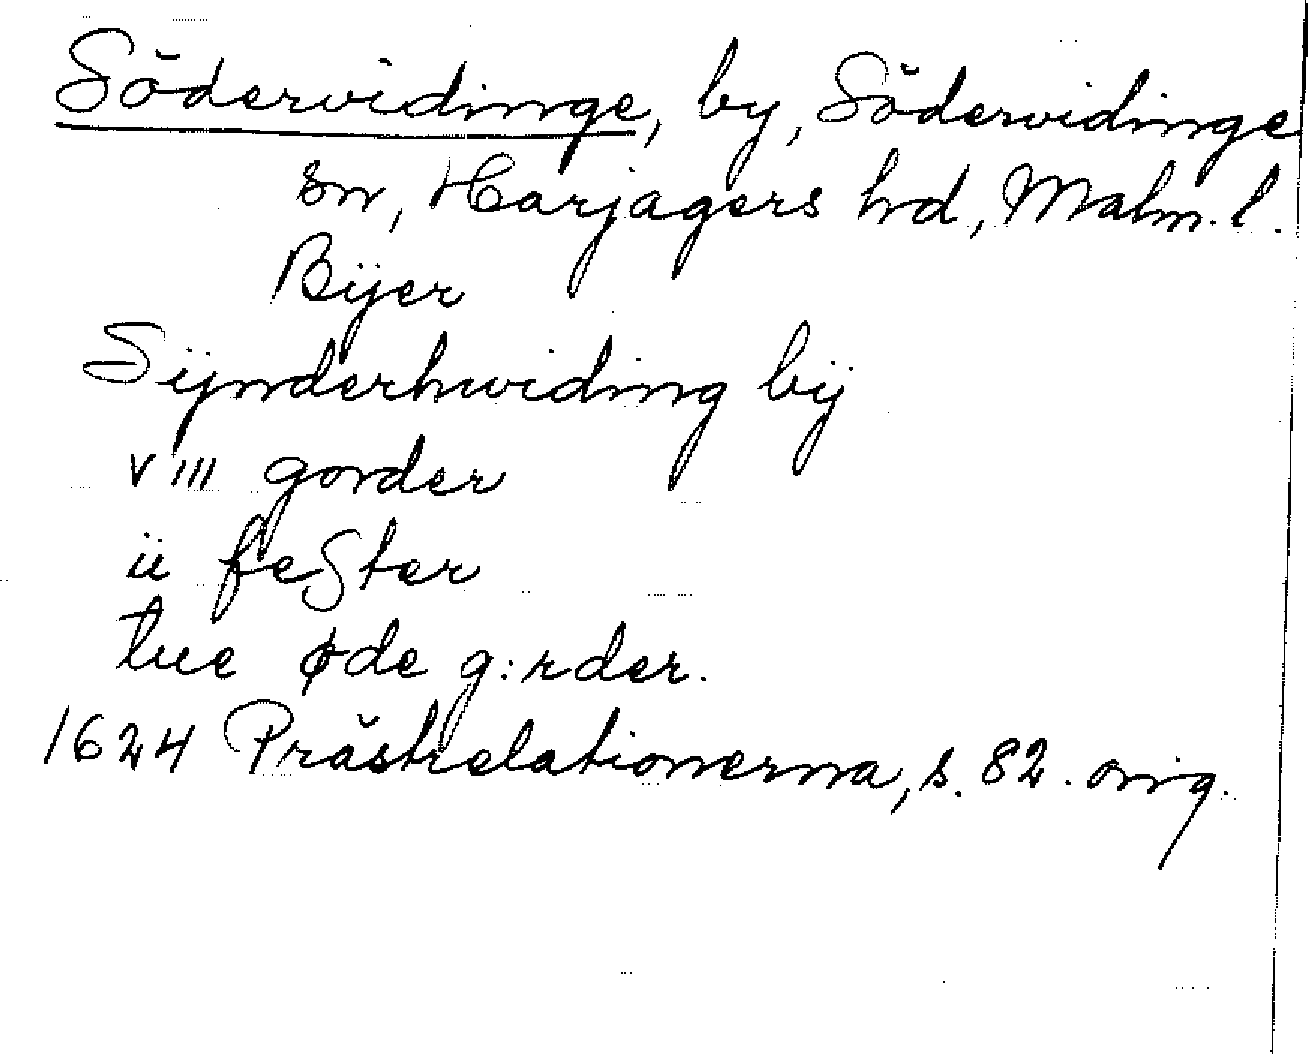 Södervidinge, by, Södervidinge
sn, Harjagers hd, Malm. l.
Bÿer
Sÿnderhwiding bÿ
VIII gorder
ii fester
tue øde g:rder.
1624 Prästrelationerna, s. 82. orig.